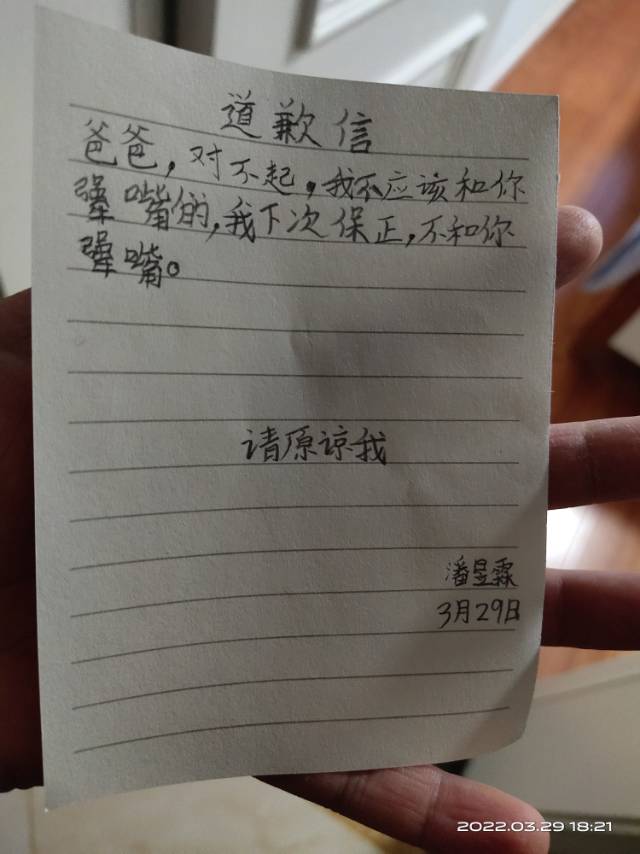 道歉信
爸爸，对不起，我不应该和你
犟嘴的，我下次保正，不和你
犟嘴。
请原谅我
潘昱霖
3月29日
2022.03.29 18:21